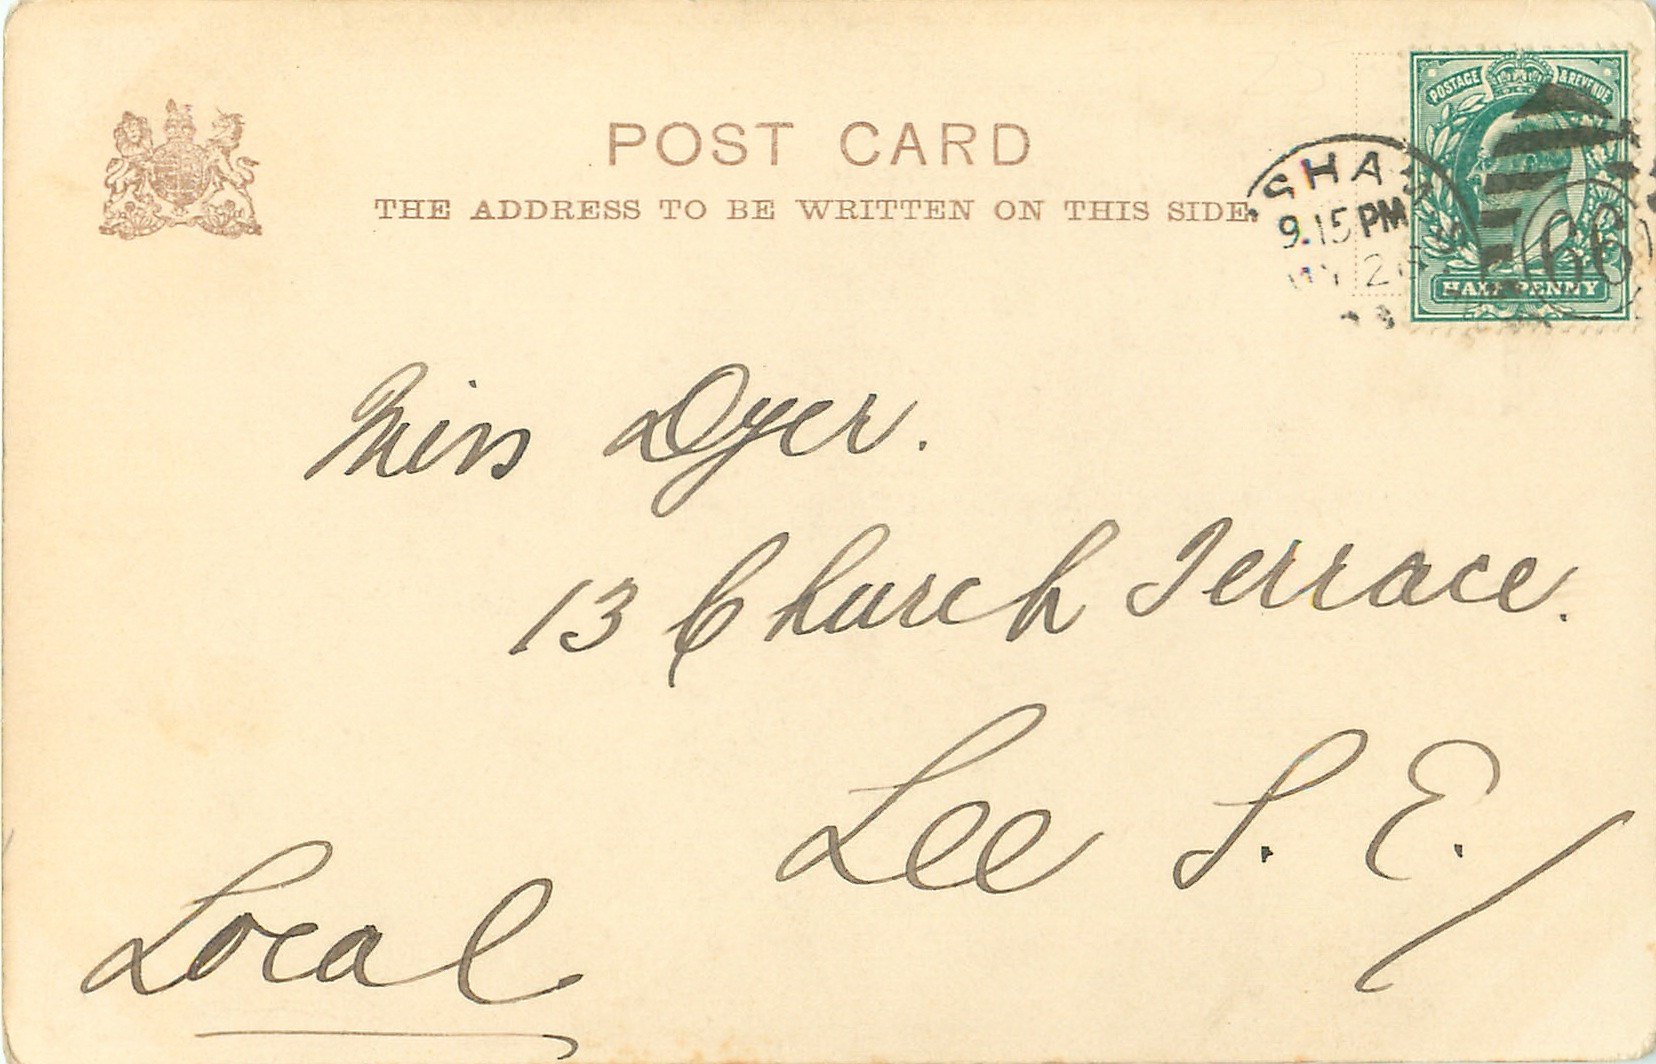 POST CARD
THE ADDRESS TO BE WRITTEN ON THIS SIDE
POSTAGE & REVENUE
HALFPENNY
9.15 PM
66
Miss Dyer.
13 Church Terrace.
Lee S.E.
Local